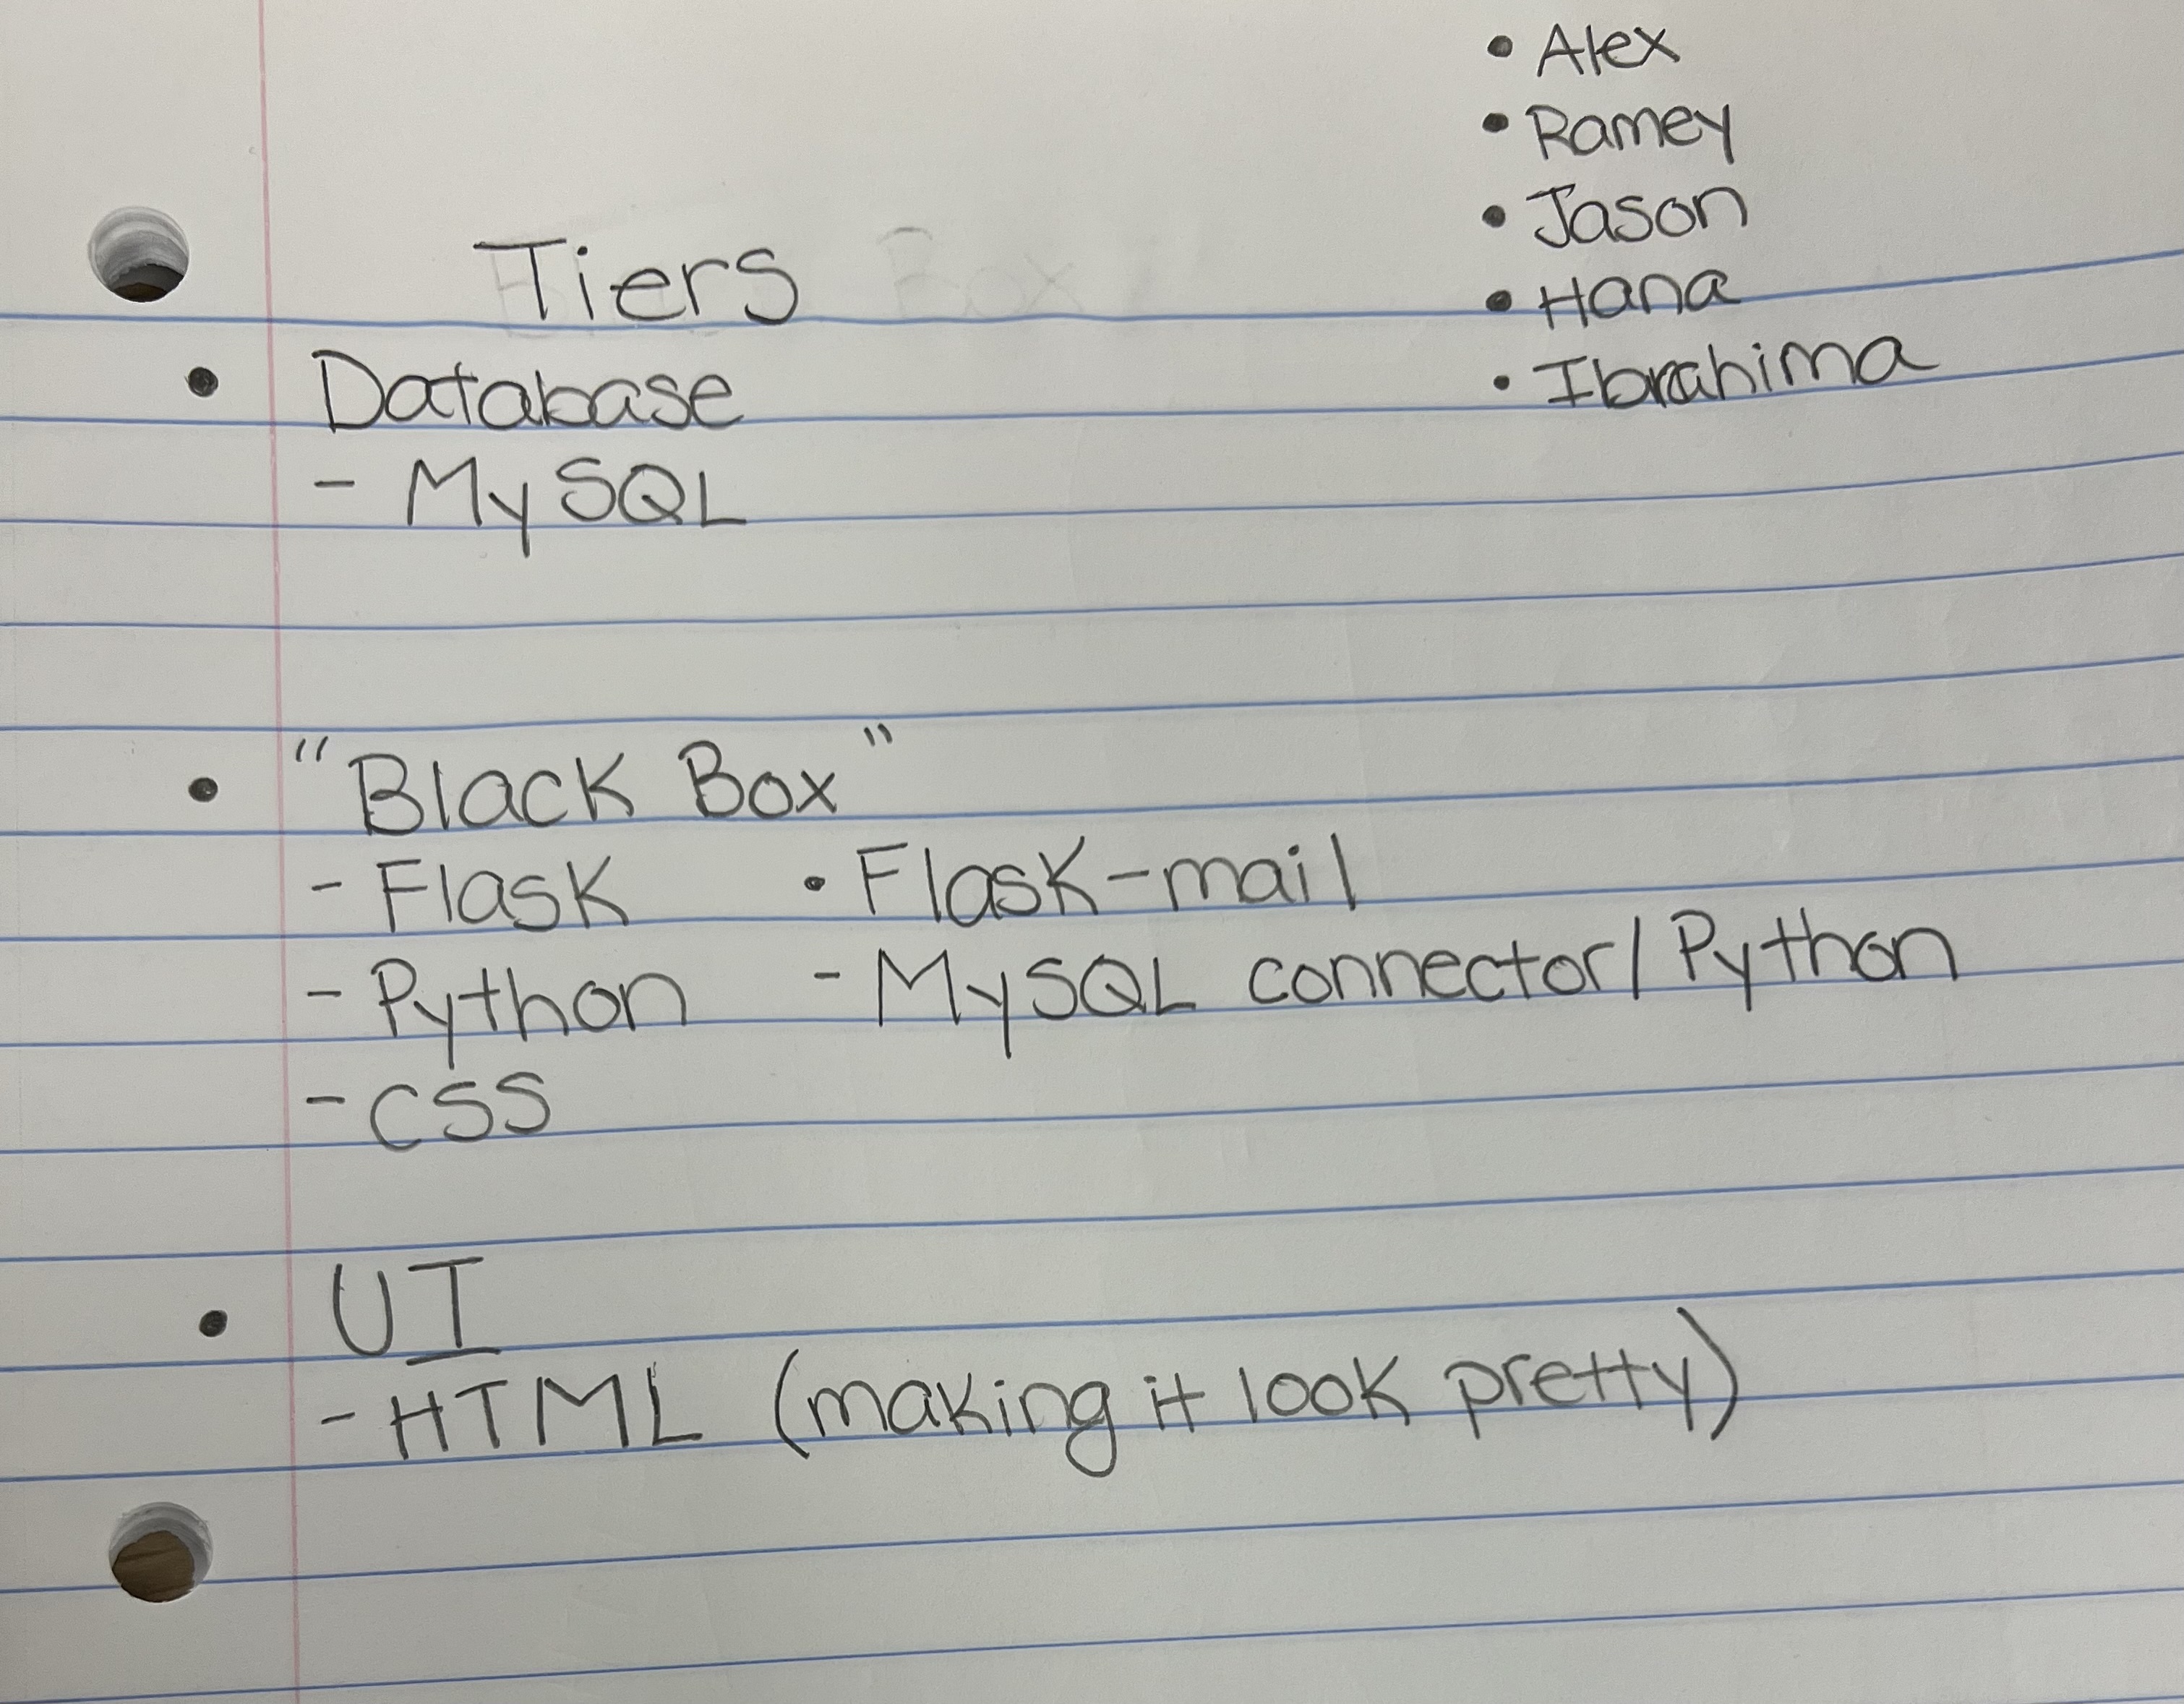 • Alex
• Ramey
• Jason
• Hana
• Ibrahima
Tiers
• Database
- MySQL
• "Black Box"
- Flask • Flask-mail
- Python - MySQL connector/Python
- CSS
• UI
- HTML (making it look pretty)